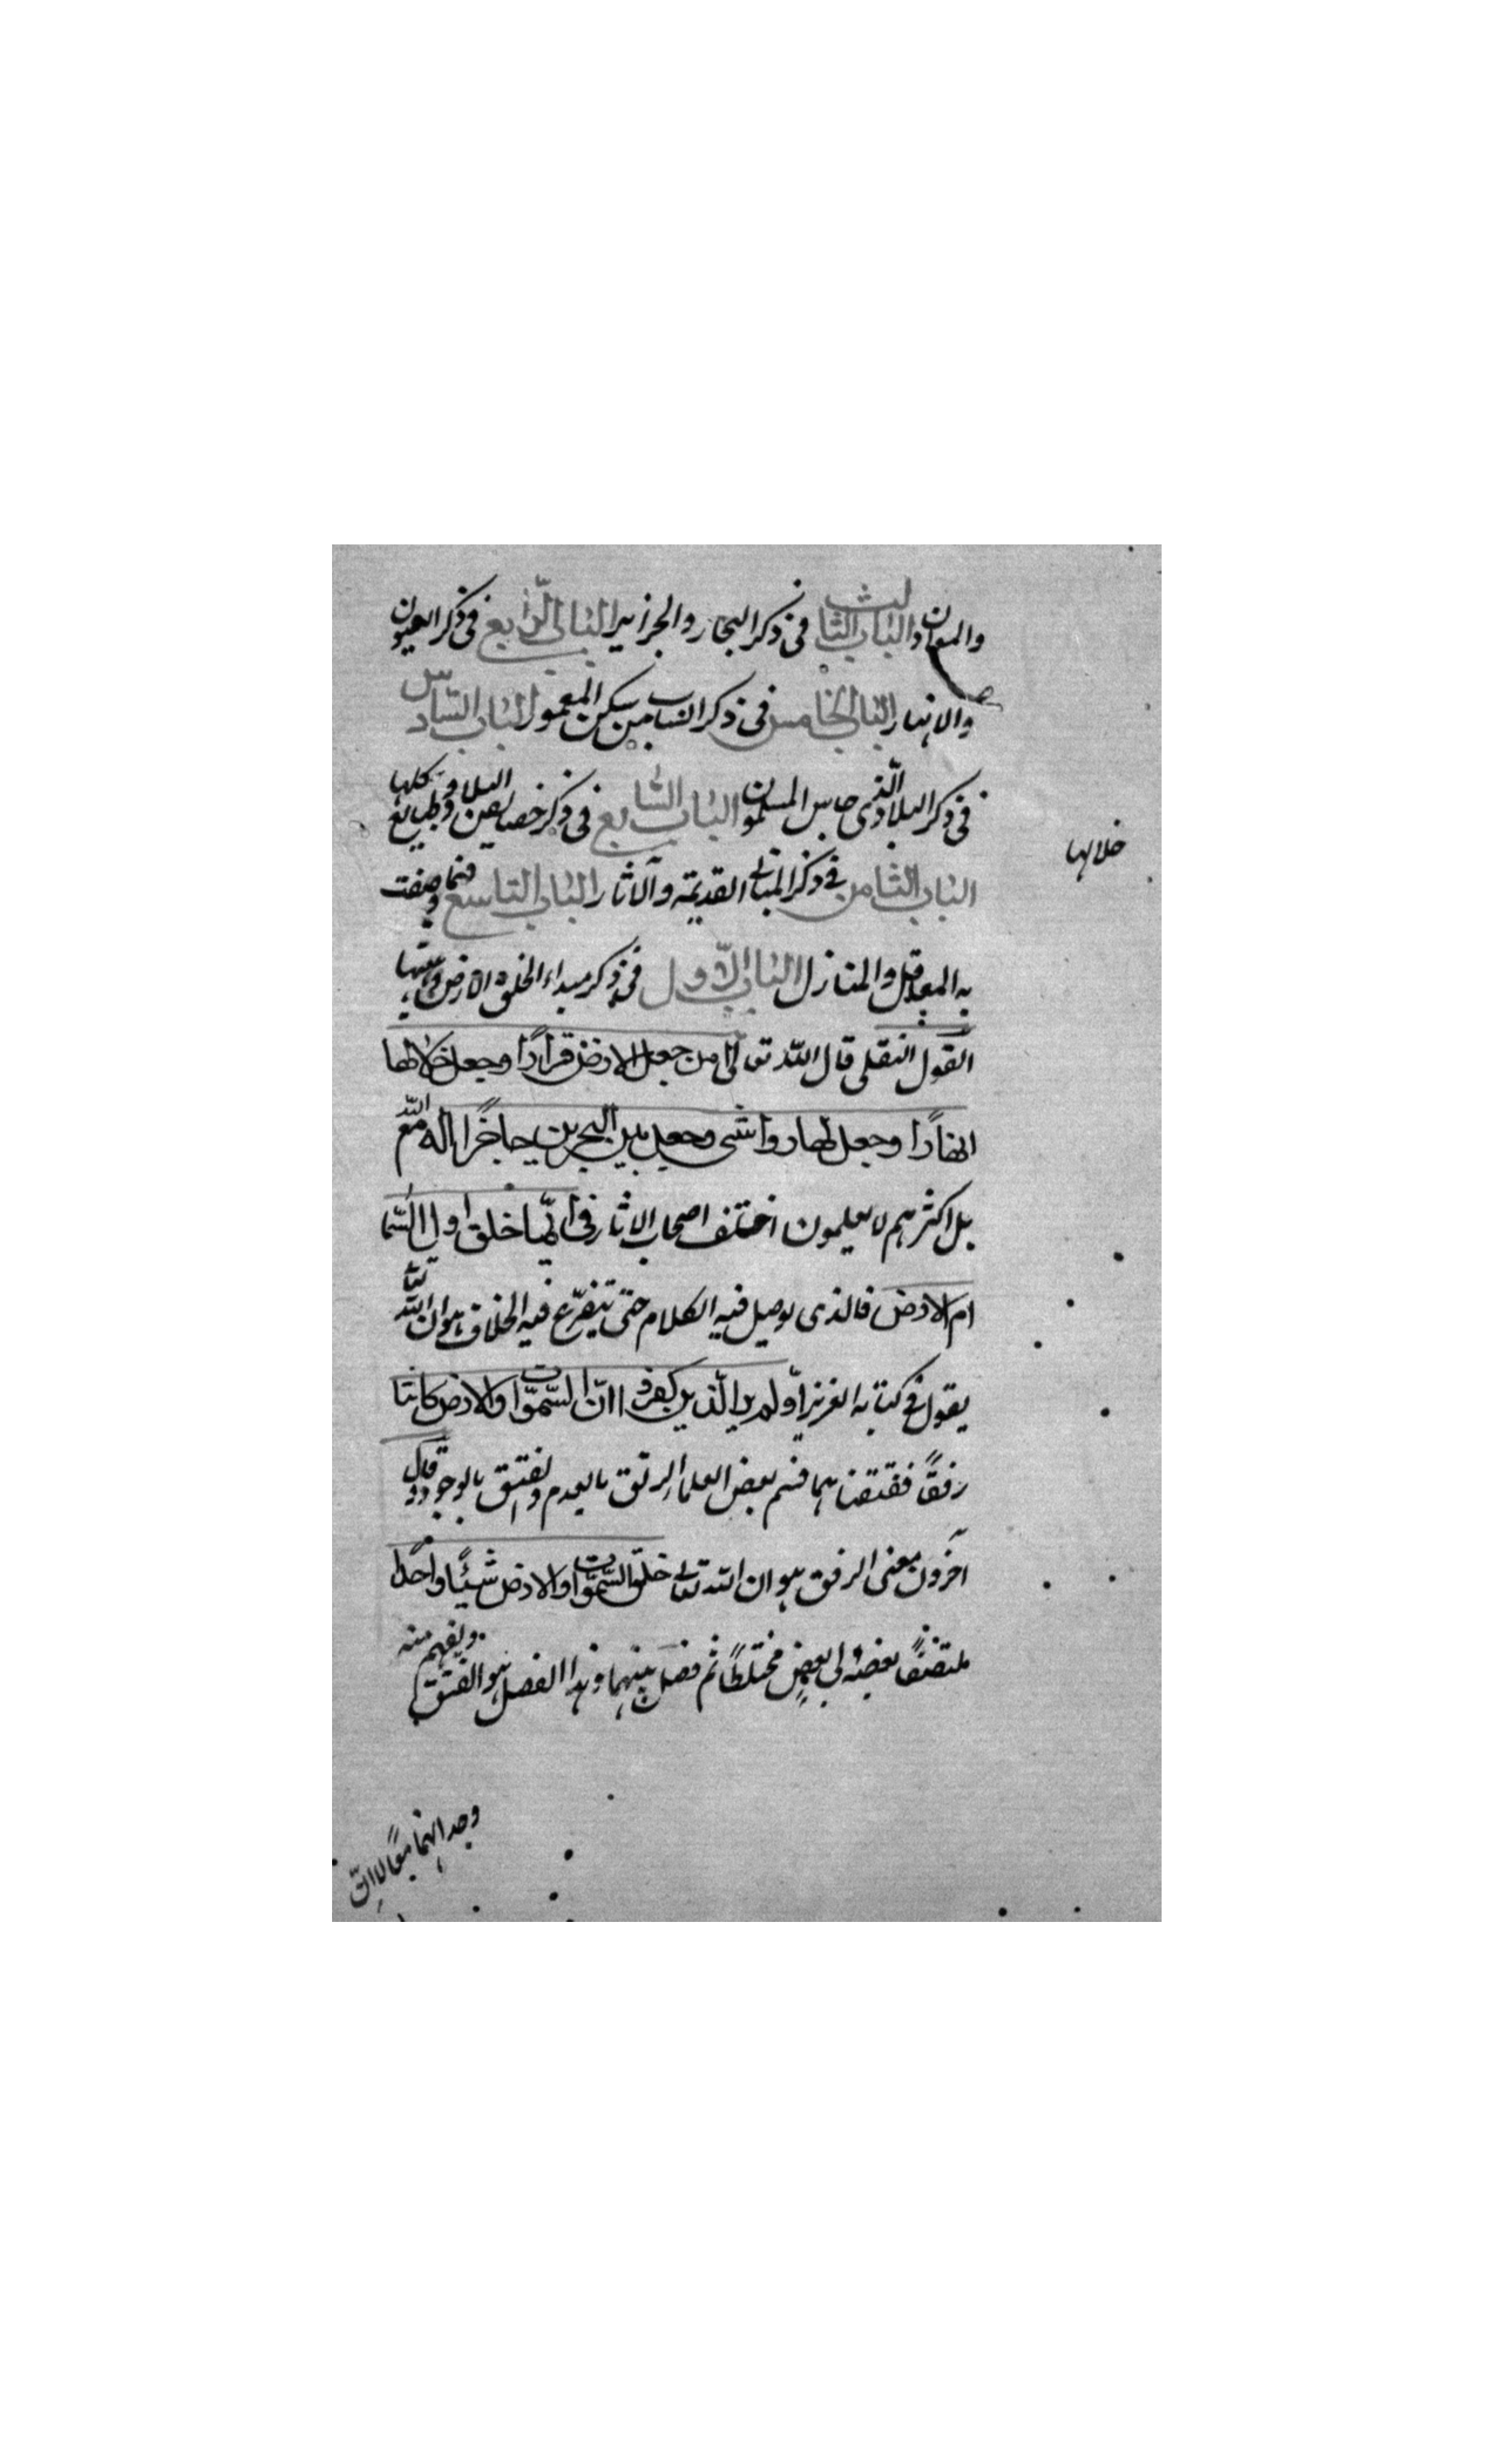 والمعادن الباب الثالث فى ذكر البحار والجزاير الباب الرّابع فى ذكر العيون
والانهار الباب الخامس فى ذكر انساب من سكن المعمور الباب السّادس
فى ذكر البلاد الّتى جاس المسلمون الباب السّابع فى ذكر خصايص البلاد وطبايع كلها
خلالها
الباب الثامن فى ذكر المبانى القديمة والآثار الباب التاسع فيما وصفت
به المعاقل والمنازل الباب الاّول فى ذكر مبداء الخلق الارض وهيئتها
القول النقلى قال اللّه تعالى امن جعل الارض قرارًا وجعل خلالها
انهارًا وجعل لها رواسى وجعل بين البحرين حاجزًا اله مع اللّه
بل اكثرهم لا يعلمون اختلف اصحاب الاثار فى ايّها خلق اولا السّما
ام الارض فالذى يوصل فيه الكلام حتى يتفرّع فيه الخلاف هو ان اللّه تعا
يقول فى كتابه العزيز اولم ير الّذين كفروا انّ السّموات والارض كانتا
رفقًا ففتقناهما بعض العلما الرتق بالعدم والفتق بالوجود وقال
آخرون معنى الرفق هو ان اللّه تعالى خلق السّموات والارض شيئًا واحدًا
ملتصقًا بعضه الى بعض مختلطًا ثم فصل بينهما وهذا الفصل هو الفتق ويفهم منه
وجد انهما